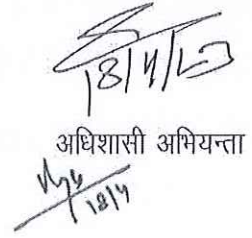 18/4/23
अधिशासी अभियन्ता
18/4